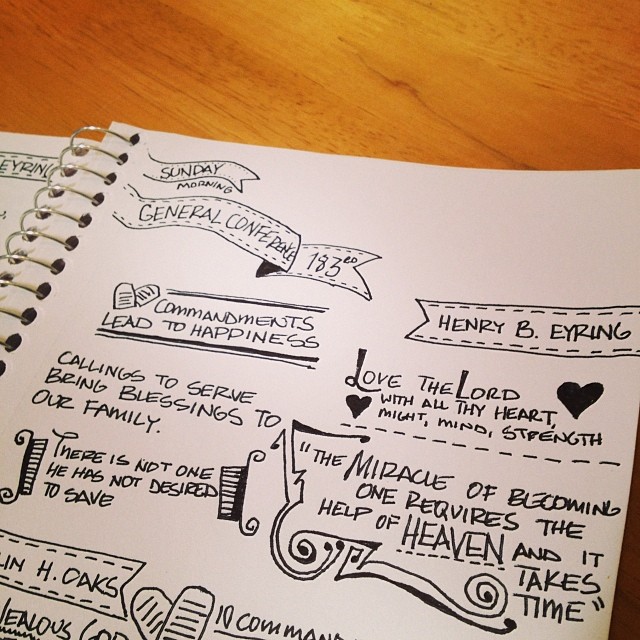 EYRING
SUNDAY
MORNING
GENERAL CONFERENCE
183RD
COMMANDMENTS
LEAD TO HAPPINESS
CALLINGS TO SERVE
BRING BLESSINGS TO
OUR FAMILY.
THERE IS NOT ONE
HE HAS NOT DESIRED
TO SAVE
HENRY B. EYRING
LOVE THE LORD
WITH ALL THY HEART,
MIGHT, MIND, STRENGTH
"THE MIRACLE OF BECOMING
ONE REQUIRES THE
HELP OF HEAVEN AND IT
TAKES
TIME"
LIN H. OAKS
JEALOUS GOD
10 COMMAND